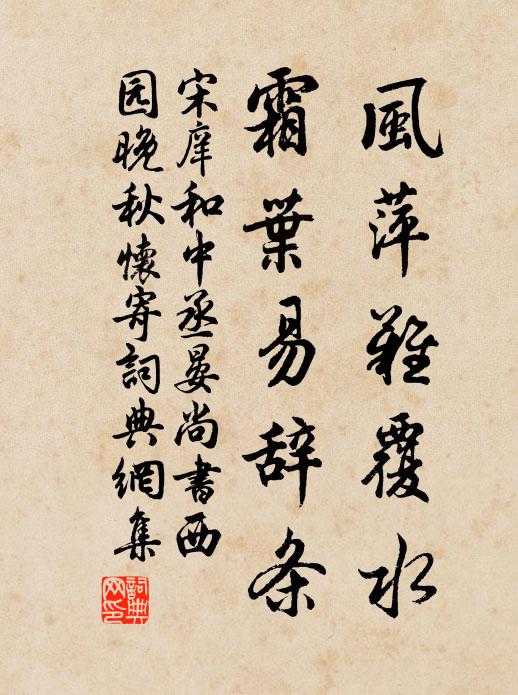 風萍難覆水
霜葉易辞条
宋庠和中丞晏尚書西
园晚秋懷寄詞典網集
詞典网印